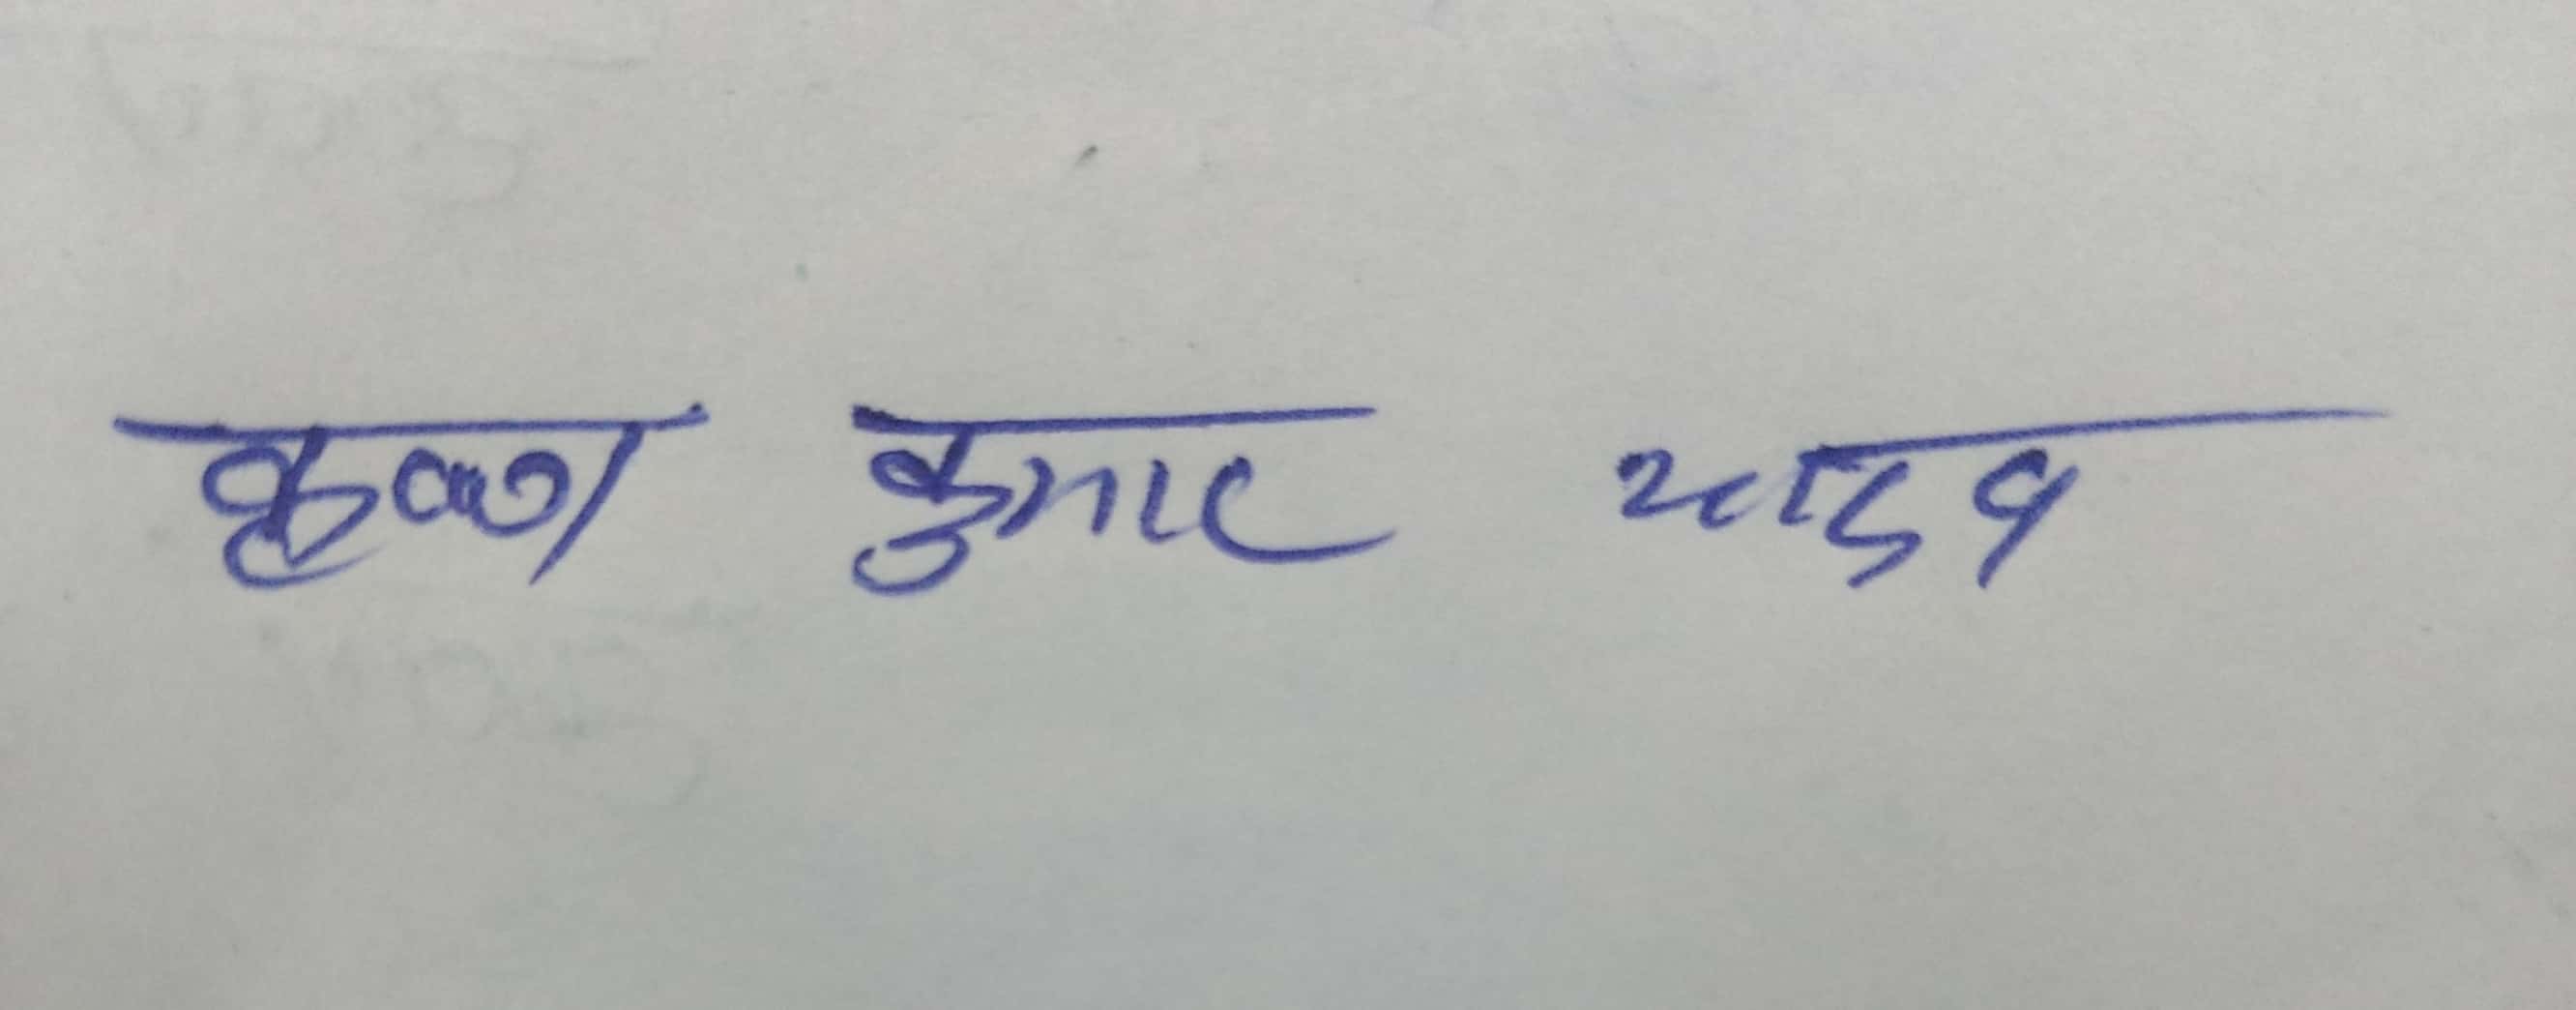 कृष्ण कुमार यादव